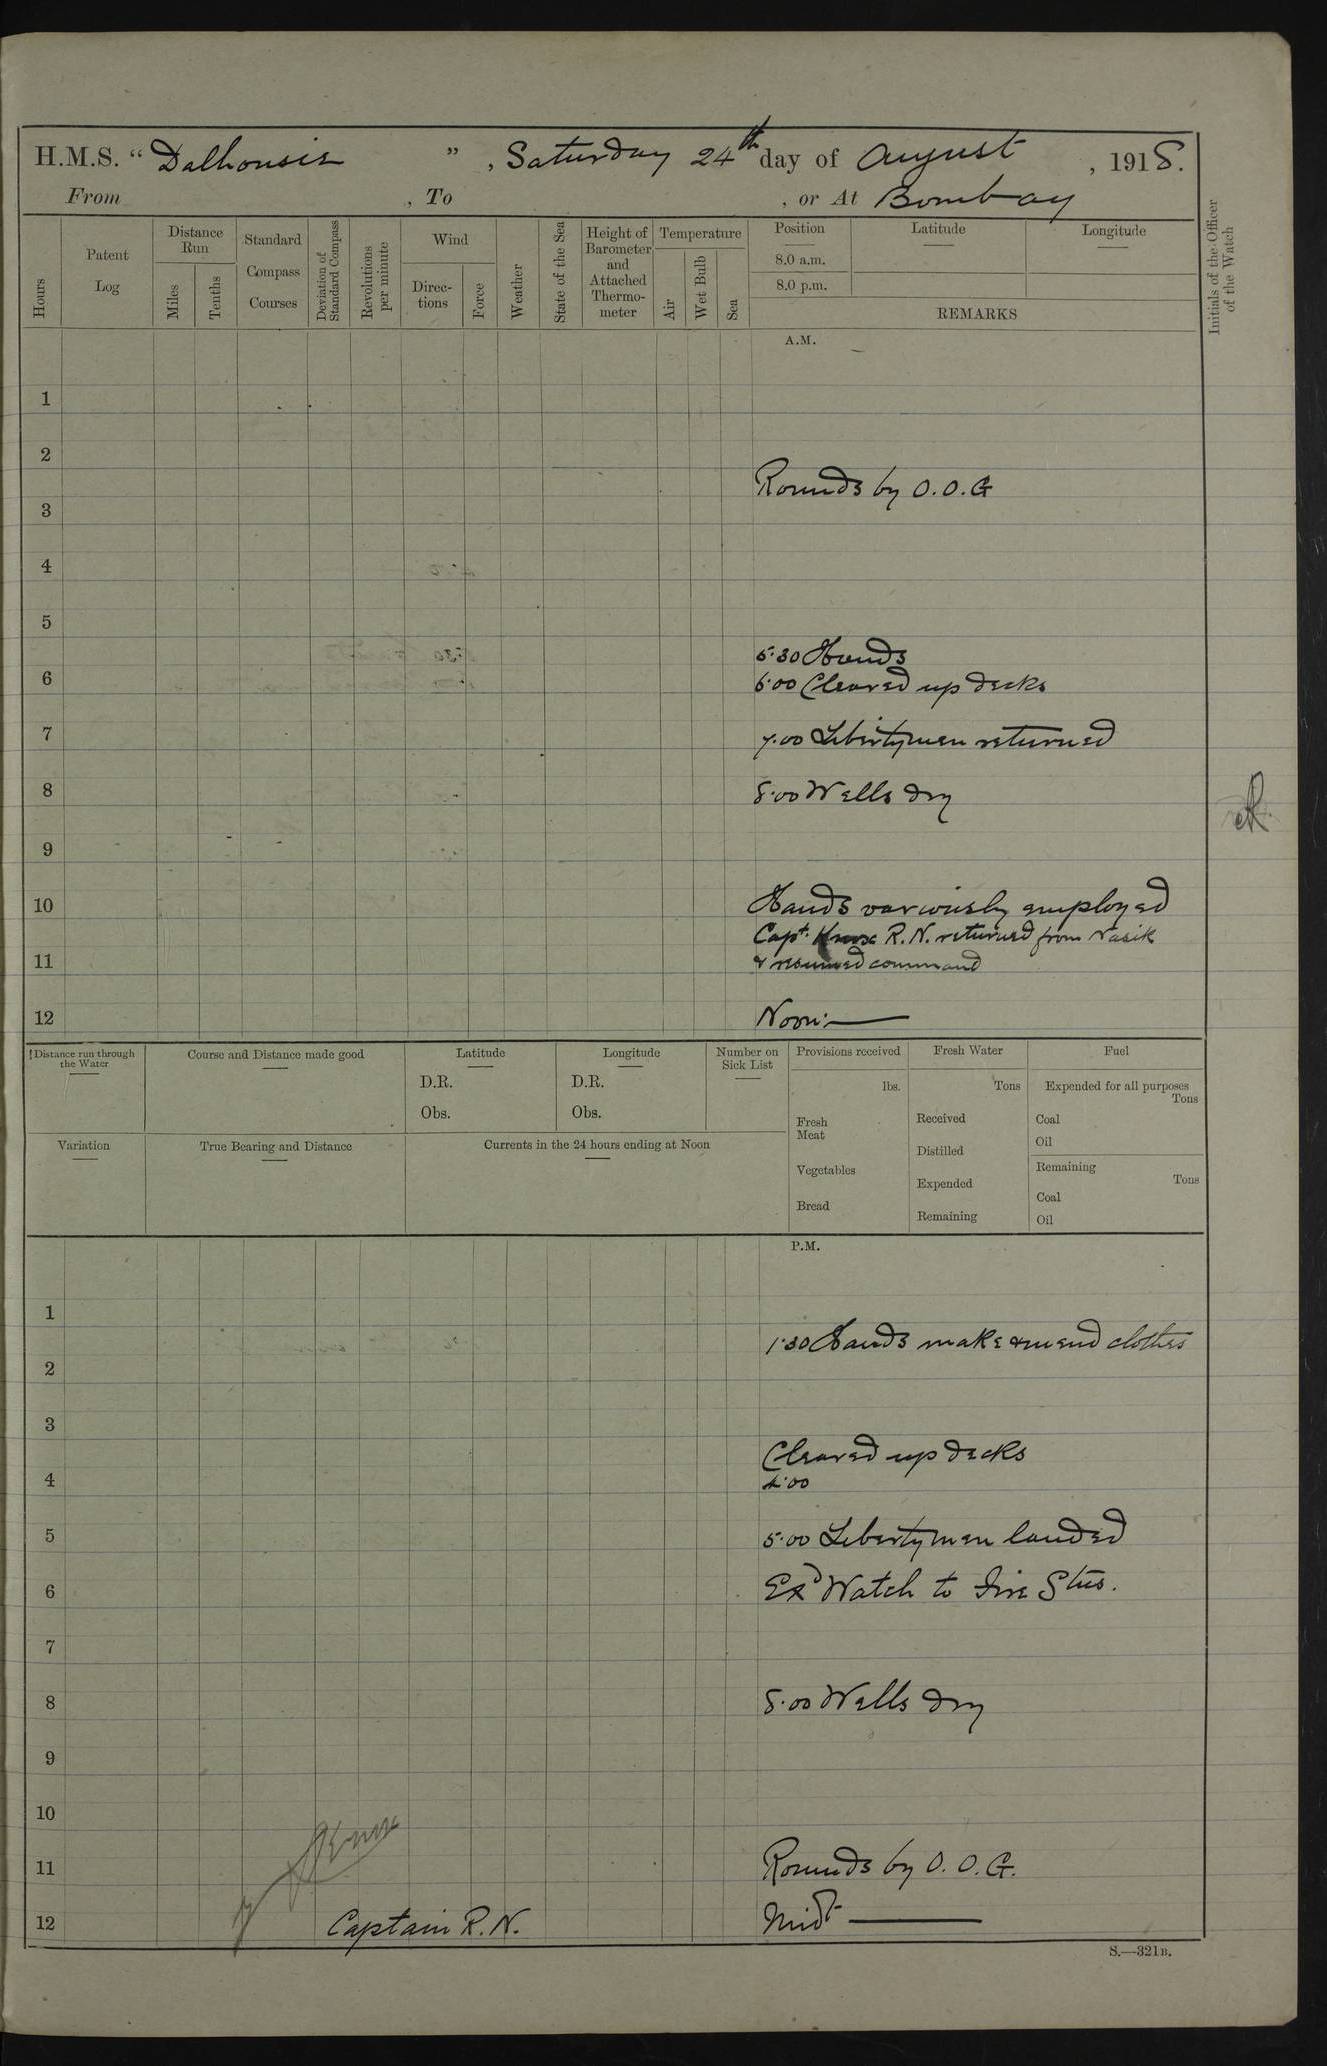 H.M.S. “ Dalhousie ” , Saturday 24th day of August , 1918.
From , To , or At Bombay
Hours
Patent Log
Distance Run
Miles
Tenths
Standard Compass Courses
Deviation of Standard Compass
Revolutions per minute
Wind
Directions
Force
Weather
State of the Sea
Height of Barometer and Attached Thermometer
Temperature
Air
Wet Bulb
Sea
Position
8.0 a.m.
8.0 p.m.
Latitude
Longitude
REMARKS
Initials of the Officer of the Watch
A.M.
1
2
Rounds by O.O.G
3
4
5
5.30 Hands
6
6.00 Cleared up decks
7
7.00 Libertymen returned
8
8.00 Wells dry
9
10
Hands variously employed
Capt. Knox R.N. returned from Nasik
11
& resumed command
12
Noon:—
Distance run through the Water
Course and Distance made good
Latitude
D.R.
Obs.
Longitude
D.R.
Obs.
Number on Sick List
Provisions received
lbs.
Fresh Meat
Vegetables
Bread
Fresh Water
Tons
Received
Distilled
Expended
Remaining
Fuel
Expended for all purposes
Tons
Coal
Oil
Remaining
Tons
Coal
Oil
Variation
True Bearing and Distance
Currents in the 24 hours ending at Noon
P.M.
1
1.30 Hands make & mend clothes
2
3
Cleared up decks
4
4.00
5
5.00 Libertymen landed
6
Exd Watch to Fire Stns.
7
8
8.00 Wells dry
9
10
11
Rounds by O.O.G.
12
Captain R.N.
Midt —
S.—321B.